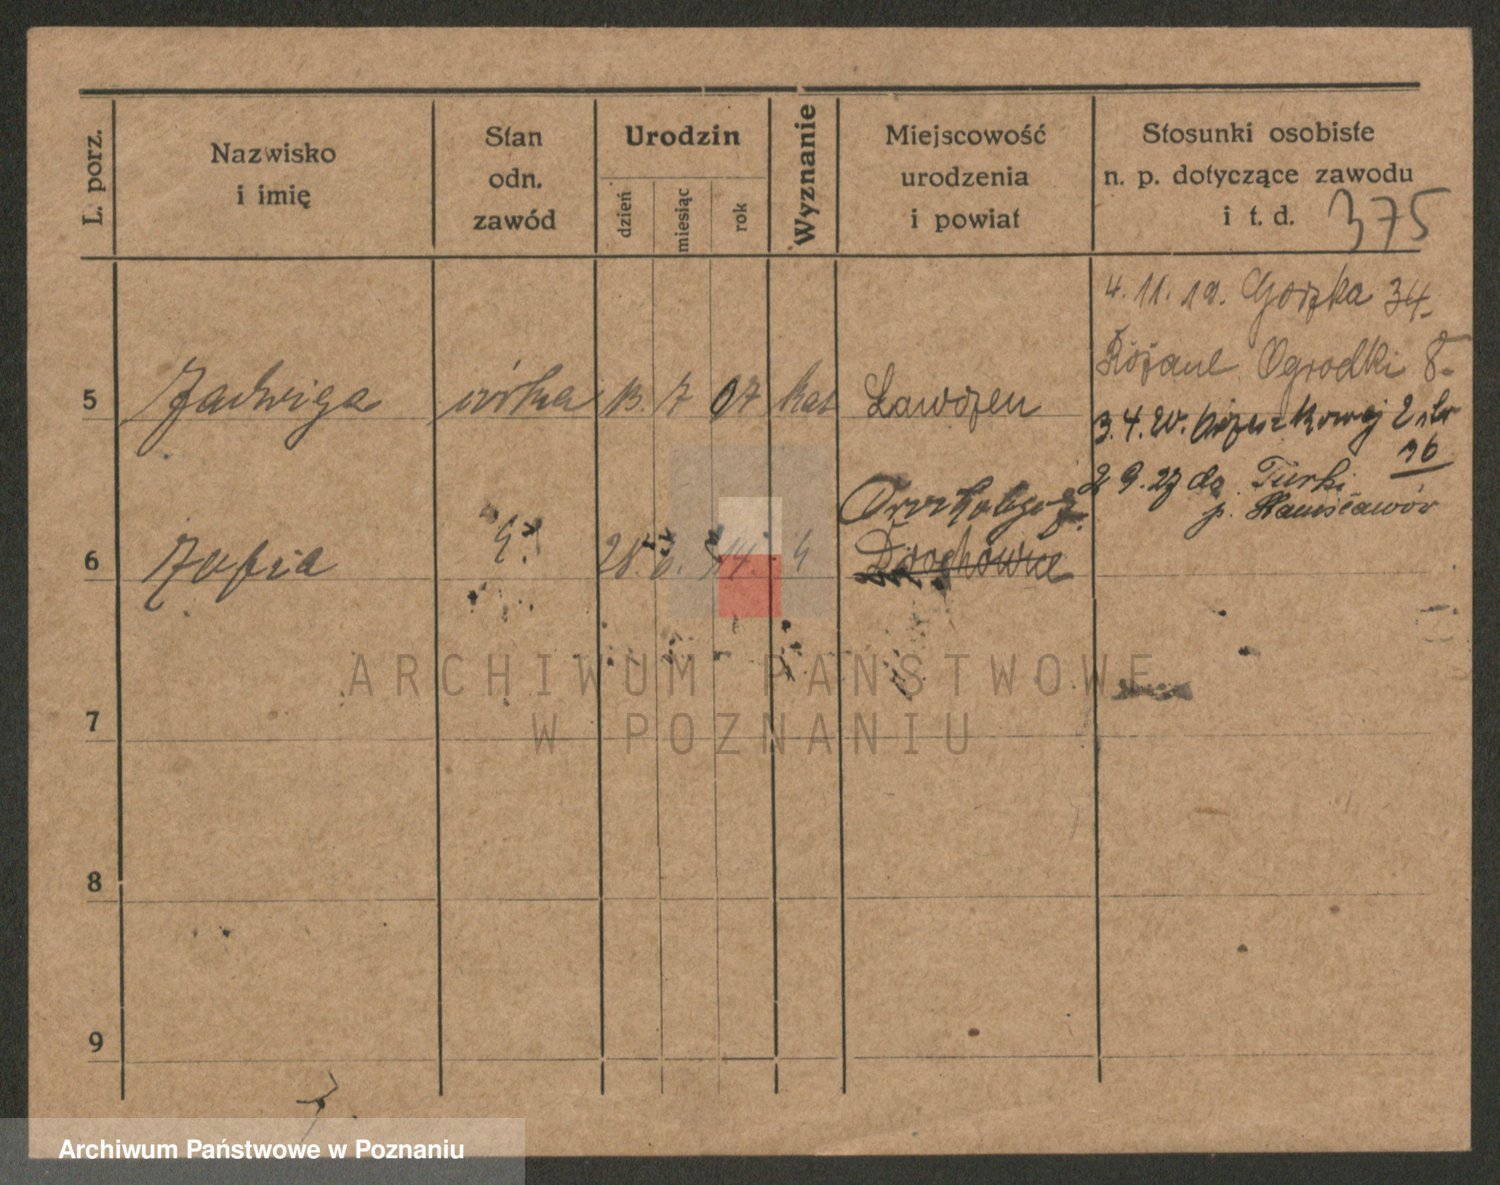 L. porz.
Nazwisko
i imię
Stan
odn.
zawód
Urodzin
dzień
miesiąc
rok
Wyznanie
Miejscowość
urodzenia
i powiat
Stosunki osobiste
n. p. dotyczące zawodu
i t. d. 375
4. 11. 19. Gorzka 34.
Różane Ogrodki 8.
5 Jadwiga córka 13. 7 07 kat Ławszen
3. 4. 20.
16
2 9. 27 do Turki
p. Stanisławów
6 Zofia 28. 6. 14. Drochowice
7
8
9
ARCHIWUM PAŃSTWOWE
W POZNANIU
Archiwum Państwowe w Poznaniu